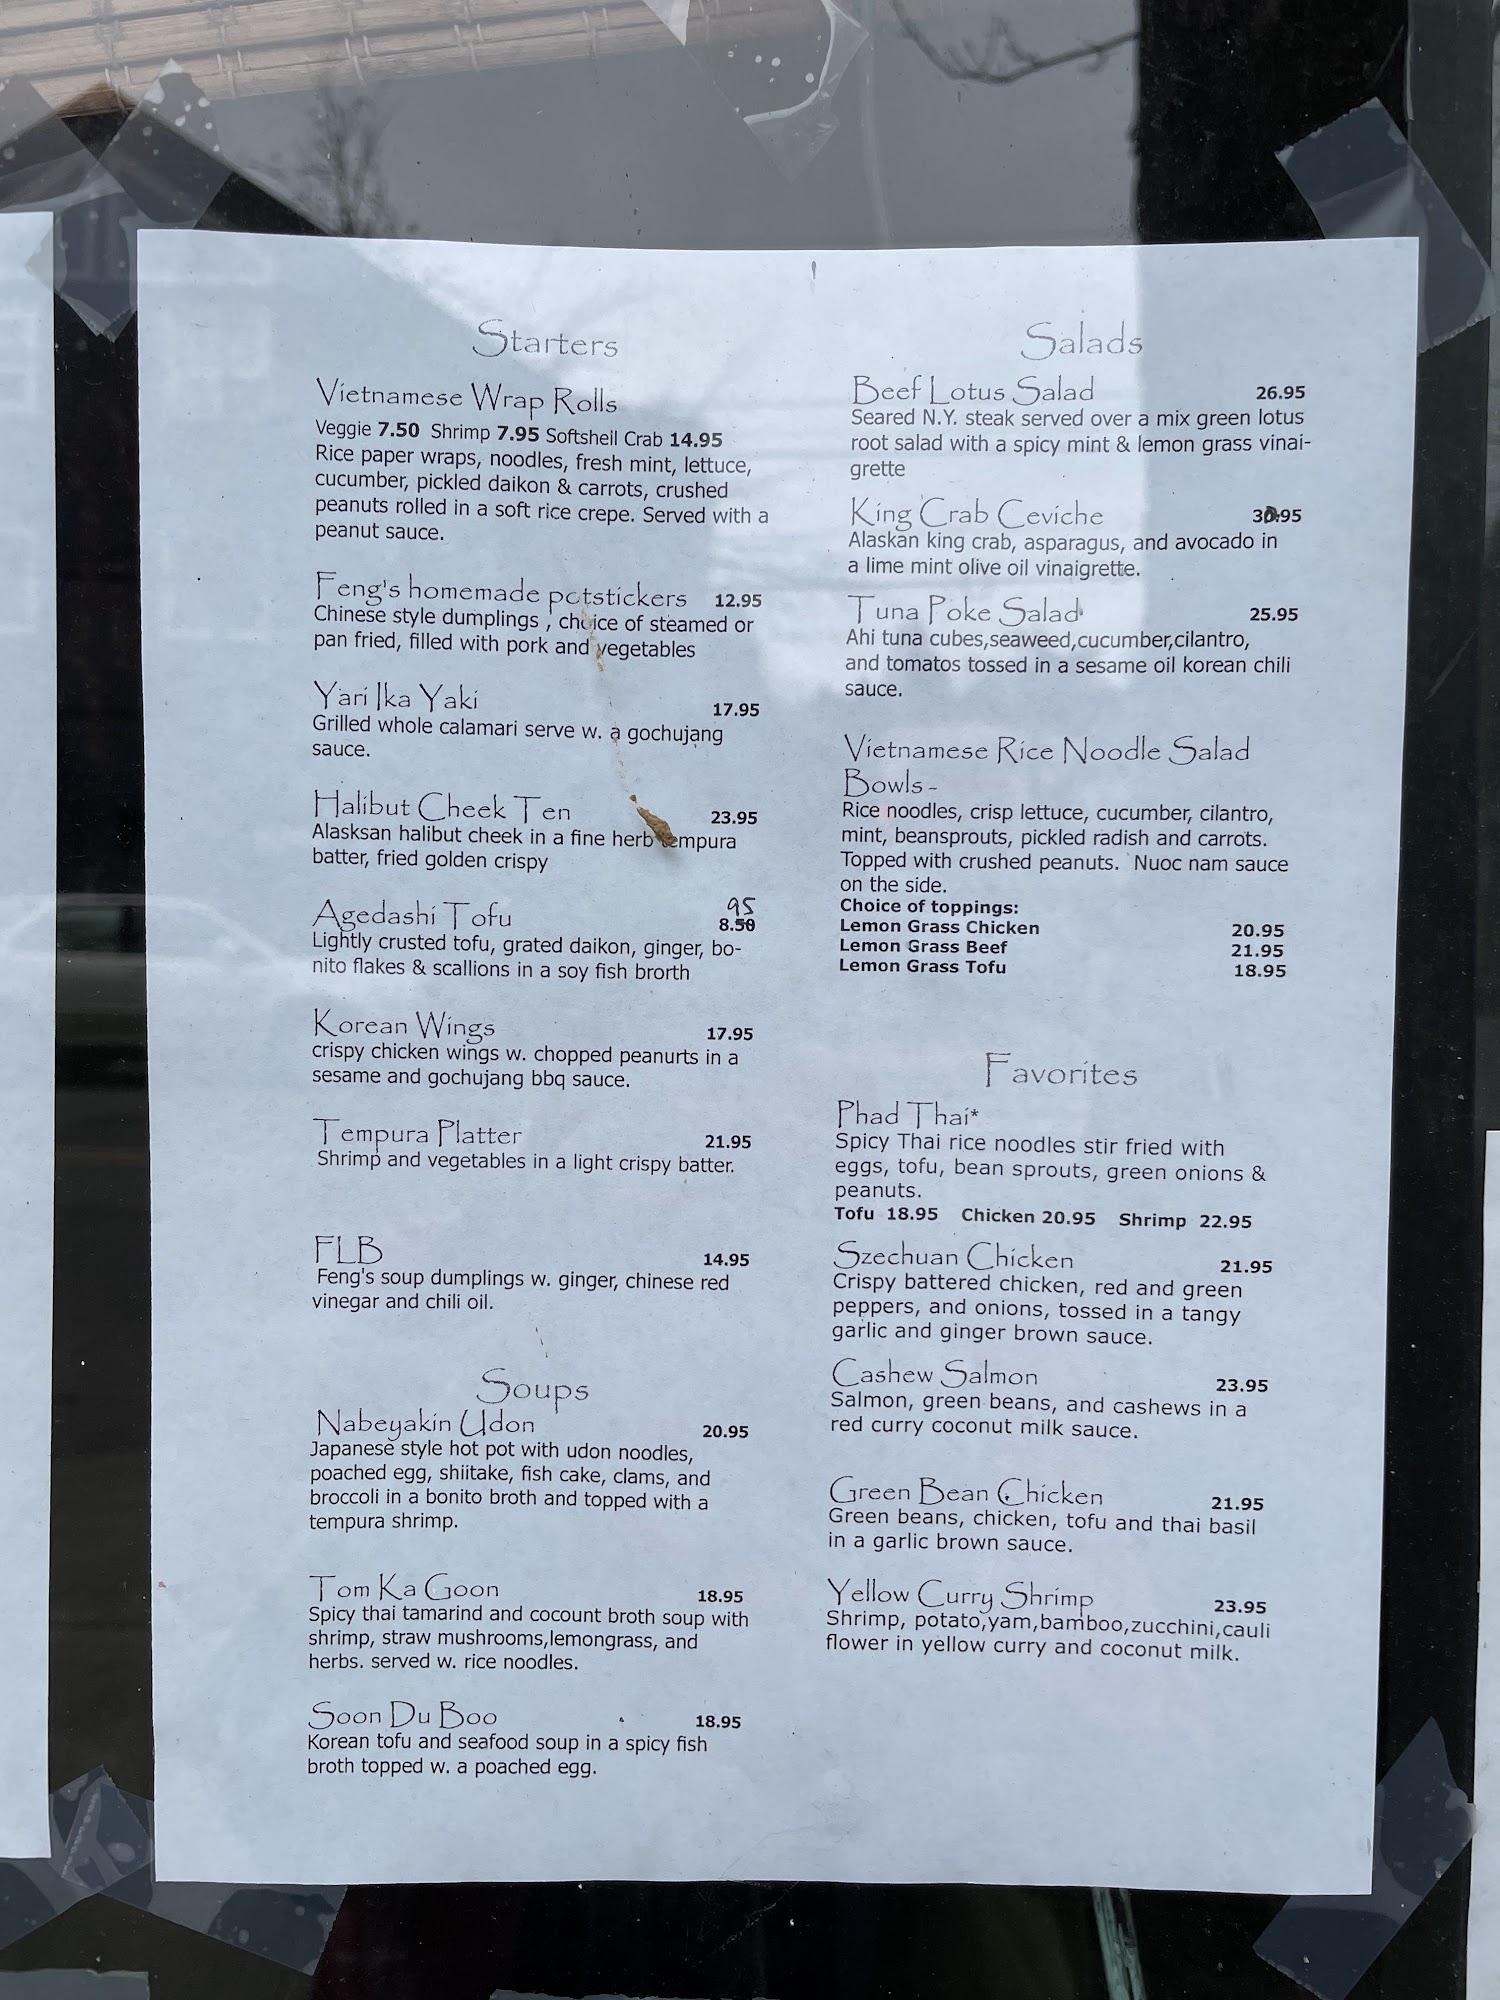 Starters
Vietnamese Wrap Rolls
Veggie 7.50 Shrimp 7.95 Softshell Crab 14.95
Rice paper wraps, noodles, fresh mint, lettuce,
cucumber, pickled daikon & carrots, crushed
peanuts rolled in a soft rice crepe. Served with a
peanut sauce.
Feng's homemade potstickers 12.95
Chinese style dumplings , choice of steamed or
pan fried, filled with pork and vegetables
Yari Ika Yaki 17.95
Grilled whole calamari serve w. a gochujang
sauce.
Halibut Cheek Ten 23.95
Alasksan halibut cheek in a fine herb tempura
batter, fried golden crispy
95
Agedashi Tofu 8.50
Lightly crusted tofu, grated daikon, ginger, bo-
nito flakes & scallions in a soy fish brorth
Korean Wings 17.95
crispy chicken wings w. chopped peanurts in a
sesame and gochujang bbq sauce.
Tempura Platter 21.95
Shrimp and vegetables in a light crispy batter.
FLB 14.95
Feng's soup dumplings w. ginger, chinese red
vinegar and chili oil.
Soups
Nabeyakin Udon 20.95
Japanese style hot pot with udon noodles,
poached egg, shiitake, fish cake, clams, and
broccoli in a bonito broth and topped with a
tempura shrimp.
Tom Ka Goon 18.95
Spicy thai tamarind and cocount broth soup with
shrimp, straw mushrooms,lemongrass, and
herbs. served w. rice noodles.
Soon Du Boo 18.95
Korean tofu and seafood soup in a spicy fish
broth topped w. a poached egg.
Salads
Beef Lotus Salad 26.95
Seared N.Y. steak served over a mix green lotus
root salad with a spicy mint & lemon grass vinai-
grette
King Crab Ceviche
Alaskan king crab, asparagus, and avocado in
a lime mint olive oil vinaigrette.
Tuna Poke Salad 25.95
Ahi tuna cubes,seaweed,cucumber,cilantro,
and tomatos tossed in a sesame oil korean chili
sauce.
Vietnamese Rice Noodle Salad
Bowls -
Rice noodles, crisp lettuce, cucumber, cilantro,
mint, beansprouts, pickled radish and carrots.
Topped with crushed peanuts. Nuoc nam sauce
on the side.
Choice of toppings:
Lemon Grass Chicken 20.95
Lemon Grass Beef 21.95
Lemon Grass Tofu 18.95
Favorites
Phad Thai*
Spicy Thai rice noodles stir fried with
eggs, tofu, bean sprouts, green onions &
peanuts.
Tofu 18.95 Chicken 20.95 Shrimp 22.95
Szechuan Chicken 21.95
Crispy battered chicken, red and green
peppers, and onions, tossed in a tangy
garlic and ginger brown sauce.
Cashew Salmon 23.95
Salmon, green beans, and cashews in a
red curry coconut milk sauce.
Green Bean Chicken 21.95
Green beans, chicken, tofu and thai basil
in a garlic brown sauce.
Yellow Curry Shrimp 23.95
Shrimp, potato,yam,bamboo,zucchini,cauli
flower in yellow curry and coconut milk.